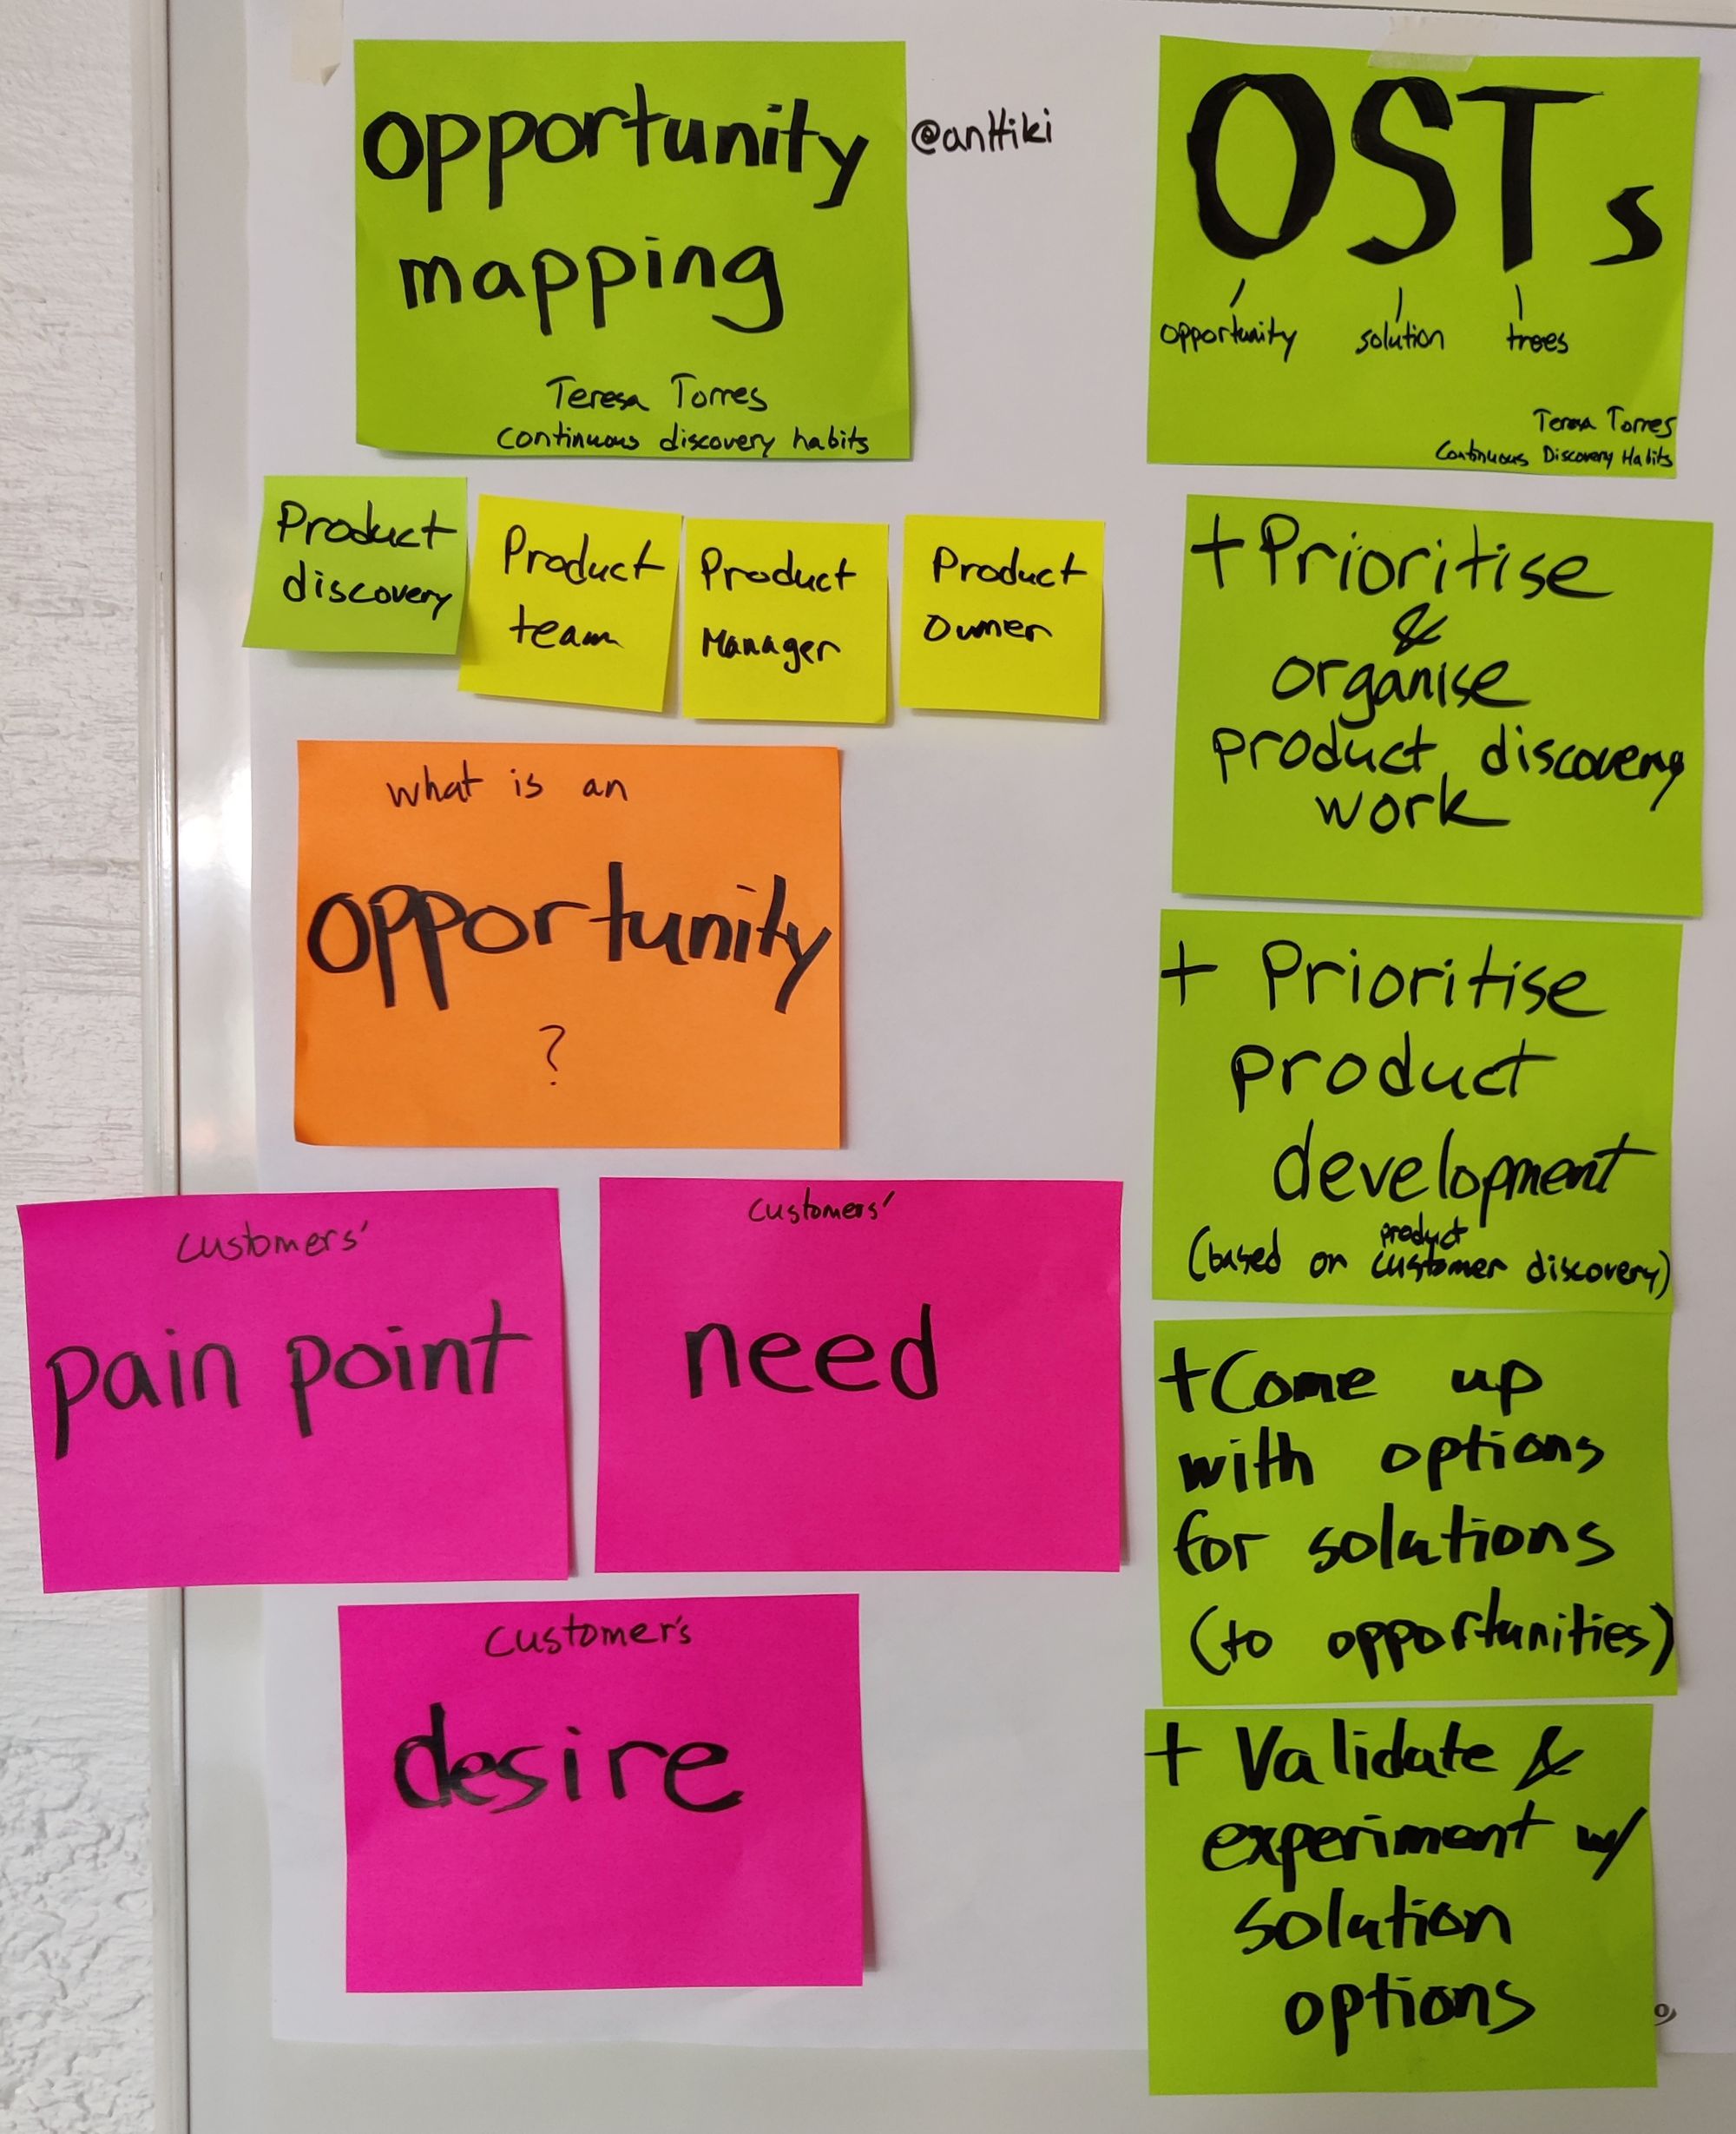 opportunity
mapping
Teresa Torres
Continuous discovery habits
@anttiki
OSTs
opportunity solution trees
Teresa Torres
Continuous Discovery Habits
Product
discovery
Product
team
Product
Manager
Product
Owner
what is an
opportunity
?
customers'
pain point
customers'
need
customer's
desire
+ Prioritise
&
organise
product discovery
work
+ Prioritise
product
development
product
(based on customer discovery)
+ Come up
with options
for solutions
(to opportunities)
+ Validate &
experiment w/
solution
options